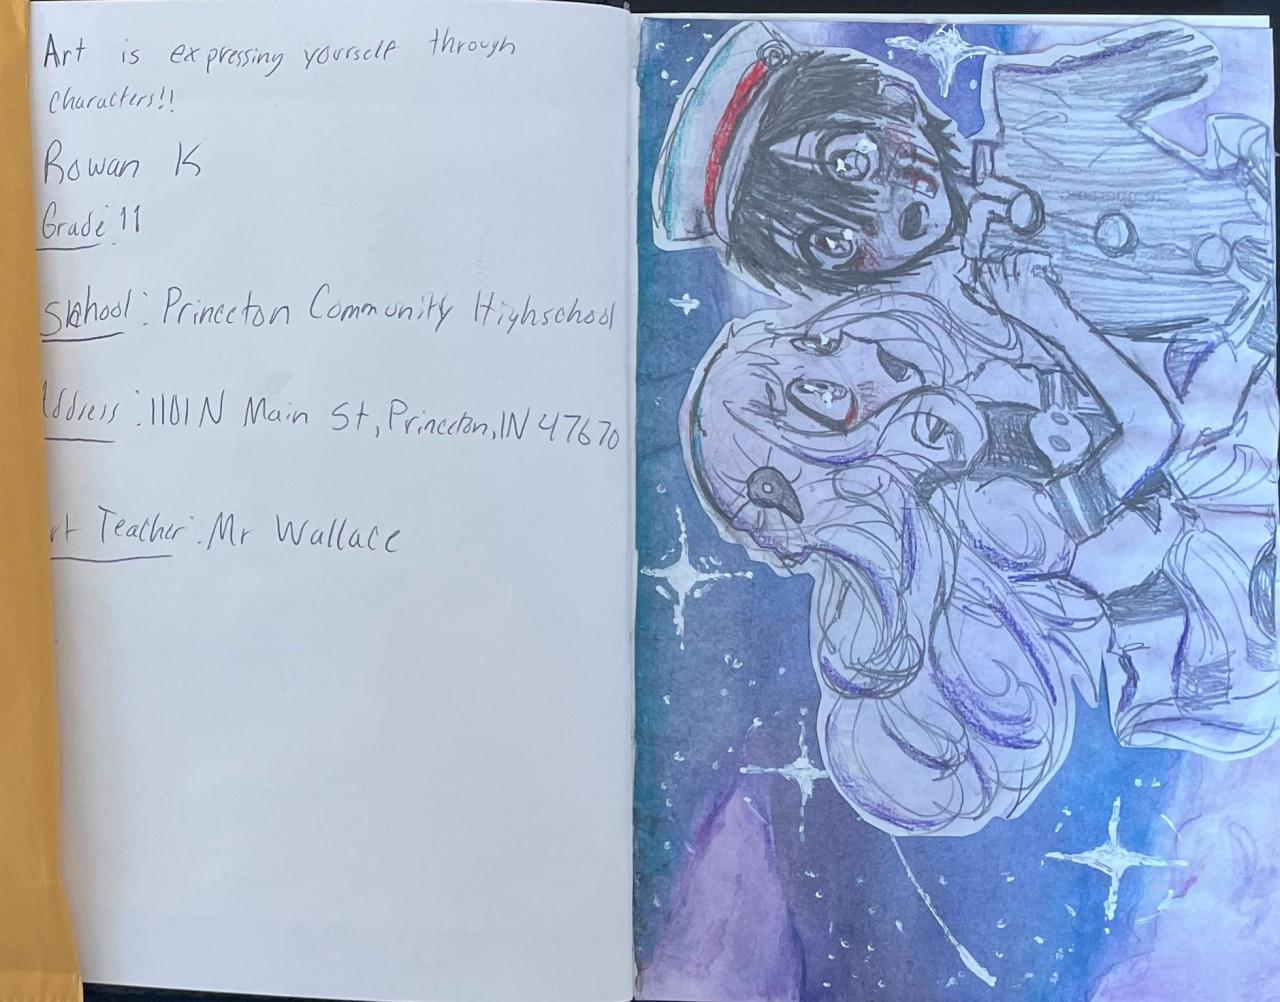 Art is expressing yourself through
characters!!
Rowan K
Grade 11
School: Princeton Community Highschool
Address: 1101 N Main St, Princeton, IN 47670
Art Teacher: Mr Wallace